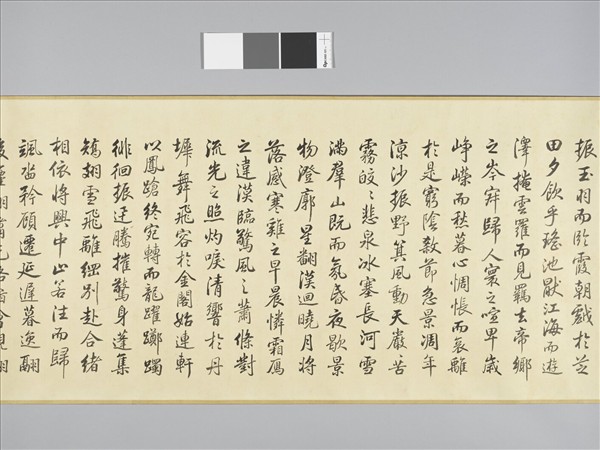 振玉羽而臨霞朝戲於芝
田夕飲乎瑤池厭江海而遊
澤掩雲羅而見羈去帝鄉
之岑寂歸人寰之喧卑歲
崢嶸而愁暮心惆悵而哀離
於是窮陰殺節急景凋年
涼沙振野箕風動天嚴苦
霧皎〻悲泉冰塞長河雪
滿羣山既而氛昏夜歇景
物澄廓星翻漢迴曉月將
落感寒雞之早晨憐霜鴈
之違漠臨驚風之蕭條對
流光之照灼唳清響於丹
墀舞飛容於金閣始連軒
以鳳蹌終宛轉而龍躍躑躅
徘徊振迅騰摧驚身蓬集
矯翅雪飛離綱別赴合緒
相依將興中止若往而歸
颯沓矜顧遷延遲暮逸翮